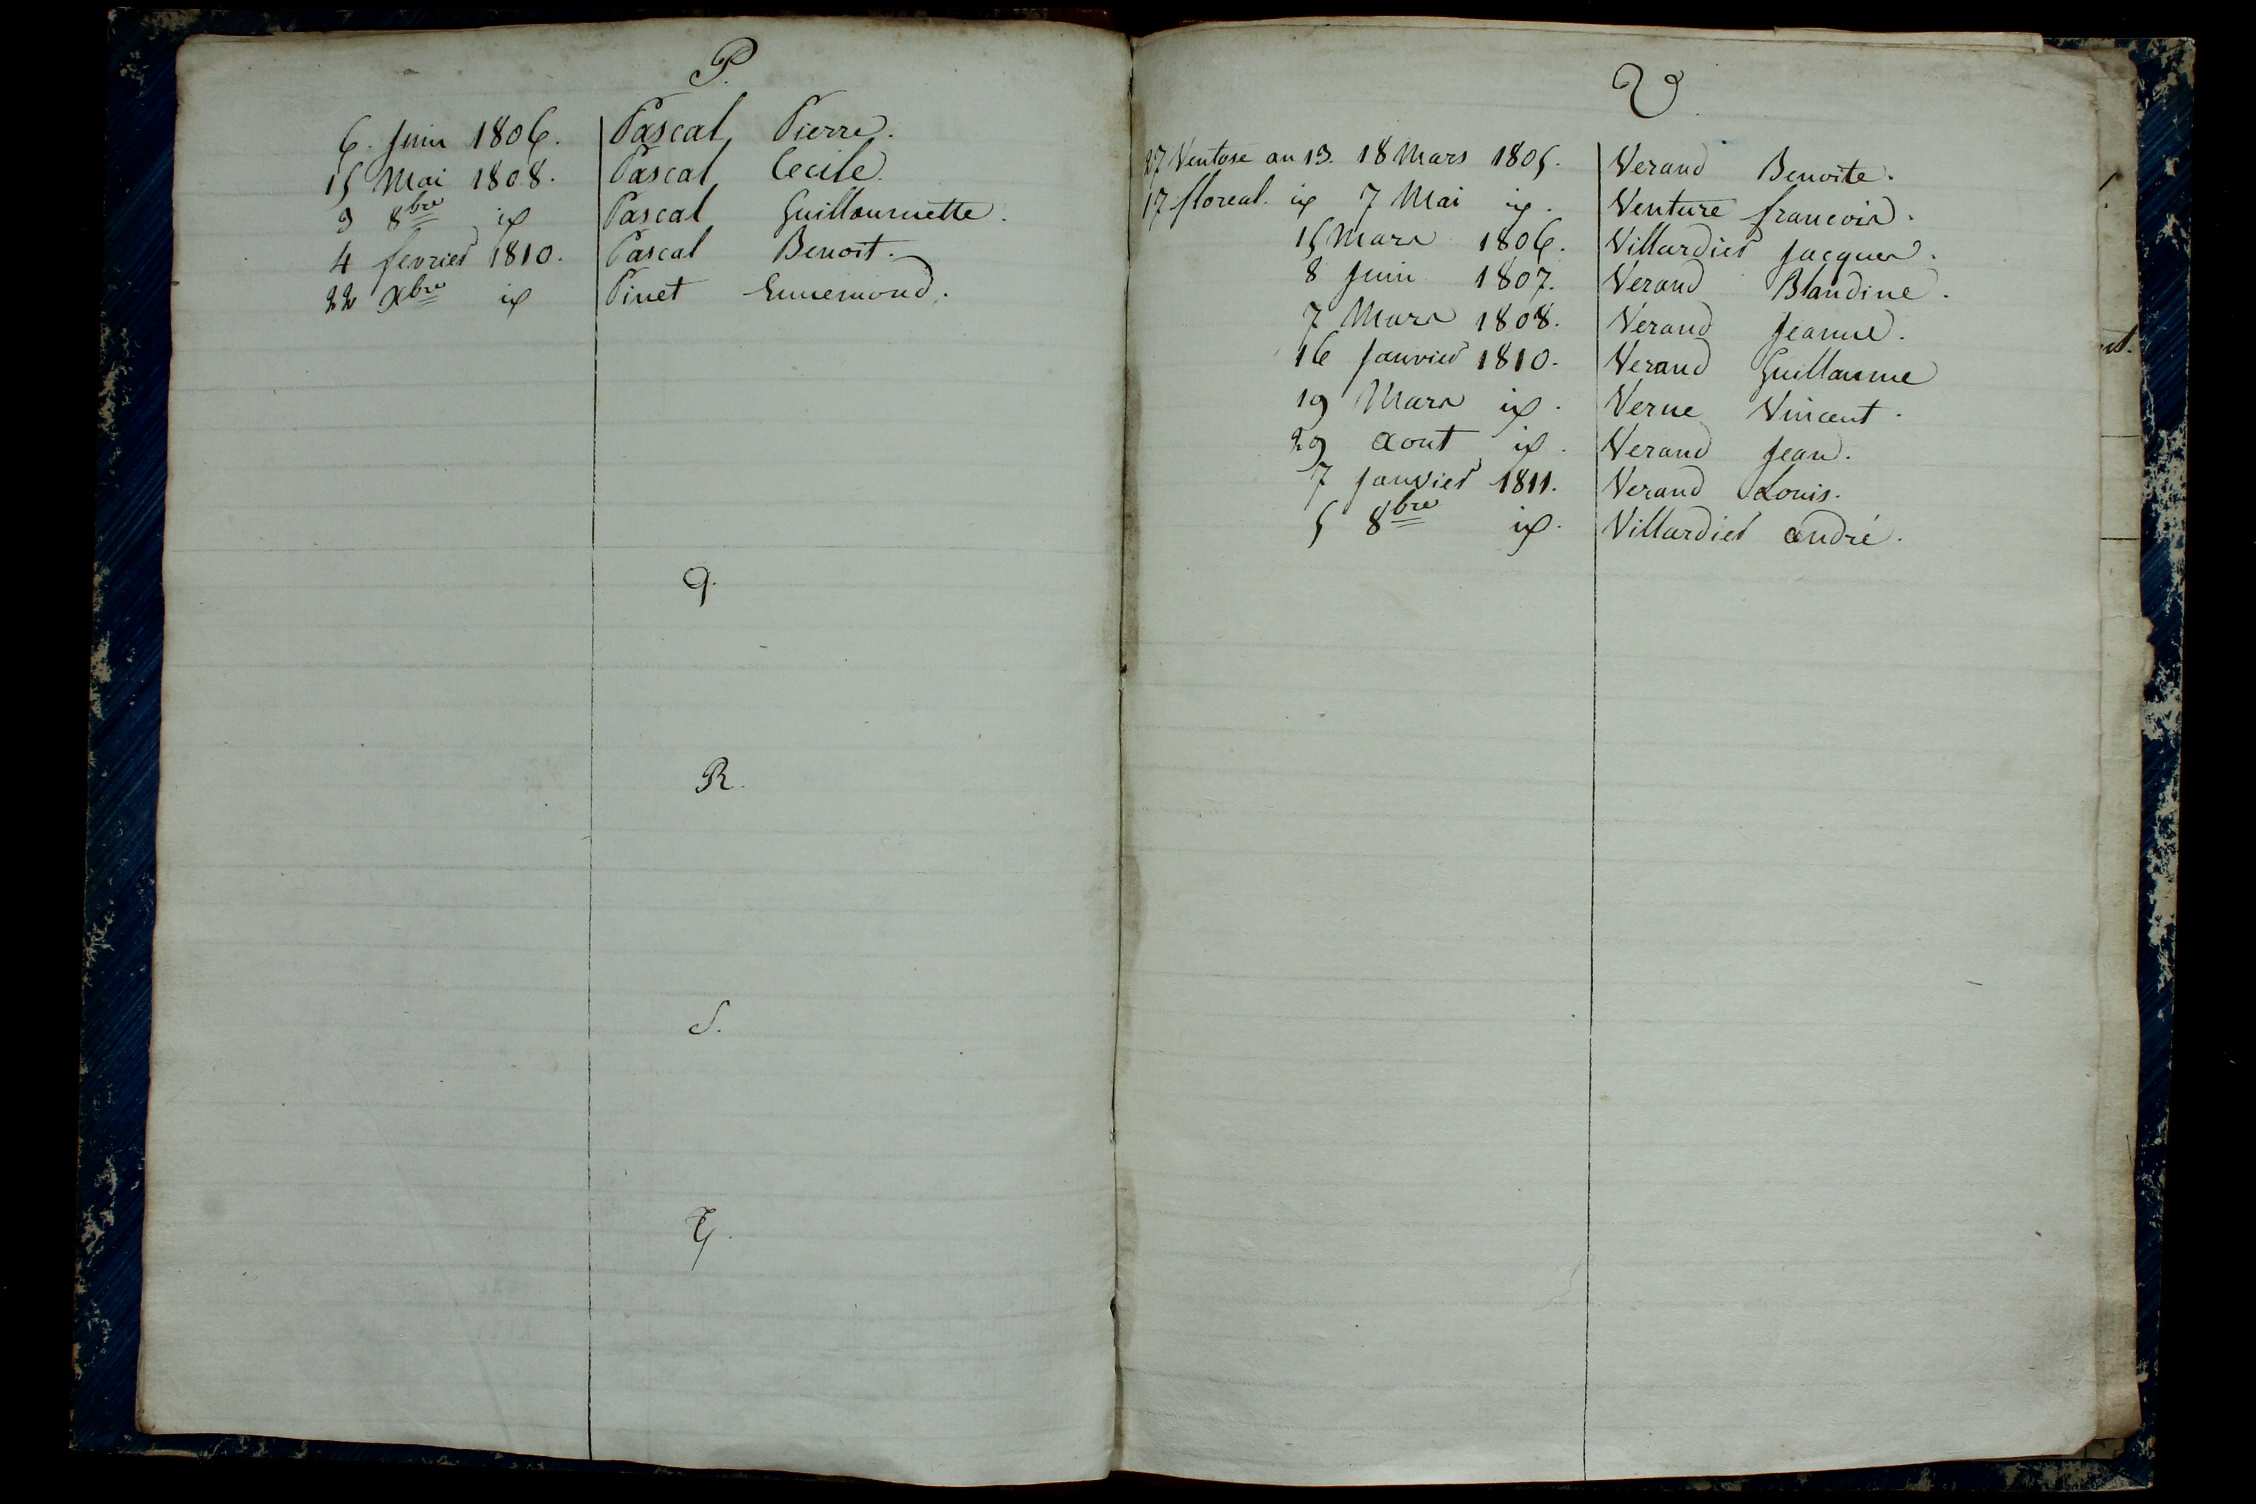 P.
6. Juin 1806. Pascal Pierre.
15 Mai 1808. Pascal Cecile.
9 8bre id Pascal Guillaumette.
4 fevrier 1810. Pascal Benoit.
22 Xbre id Pinet Ennemond.
Q.
R.
S.
T.
V.
27 Ventose an 13. 18 Mars 1805. Verand Benoite.
17 floreal. id 7 Mai id. Venture francois.
15 Mars 1806. Villardier Jacques.
8 Juin 1807. Verand Blandine.
7 Mars 1808. Verand Jeanne.
16 Janvier 1810. Verand Guillaume
19 Mars id. Verne Vincent.
29 aout id. Verand Jean.
7 Janvier 1811. Verand Louis.
5 8bre id. Villardier andré.